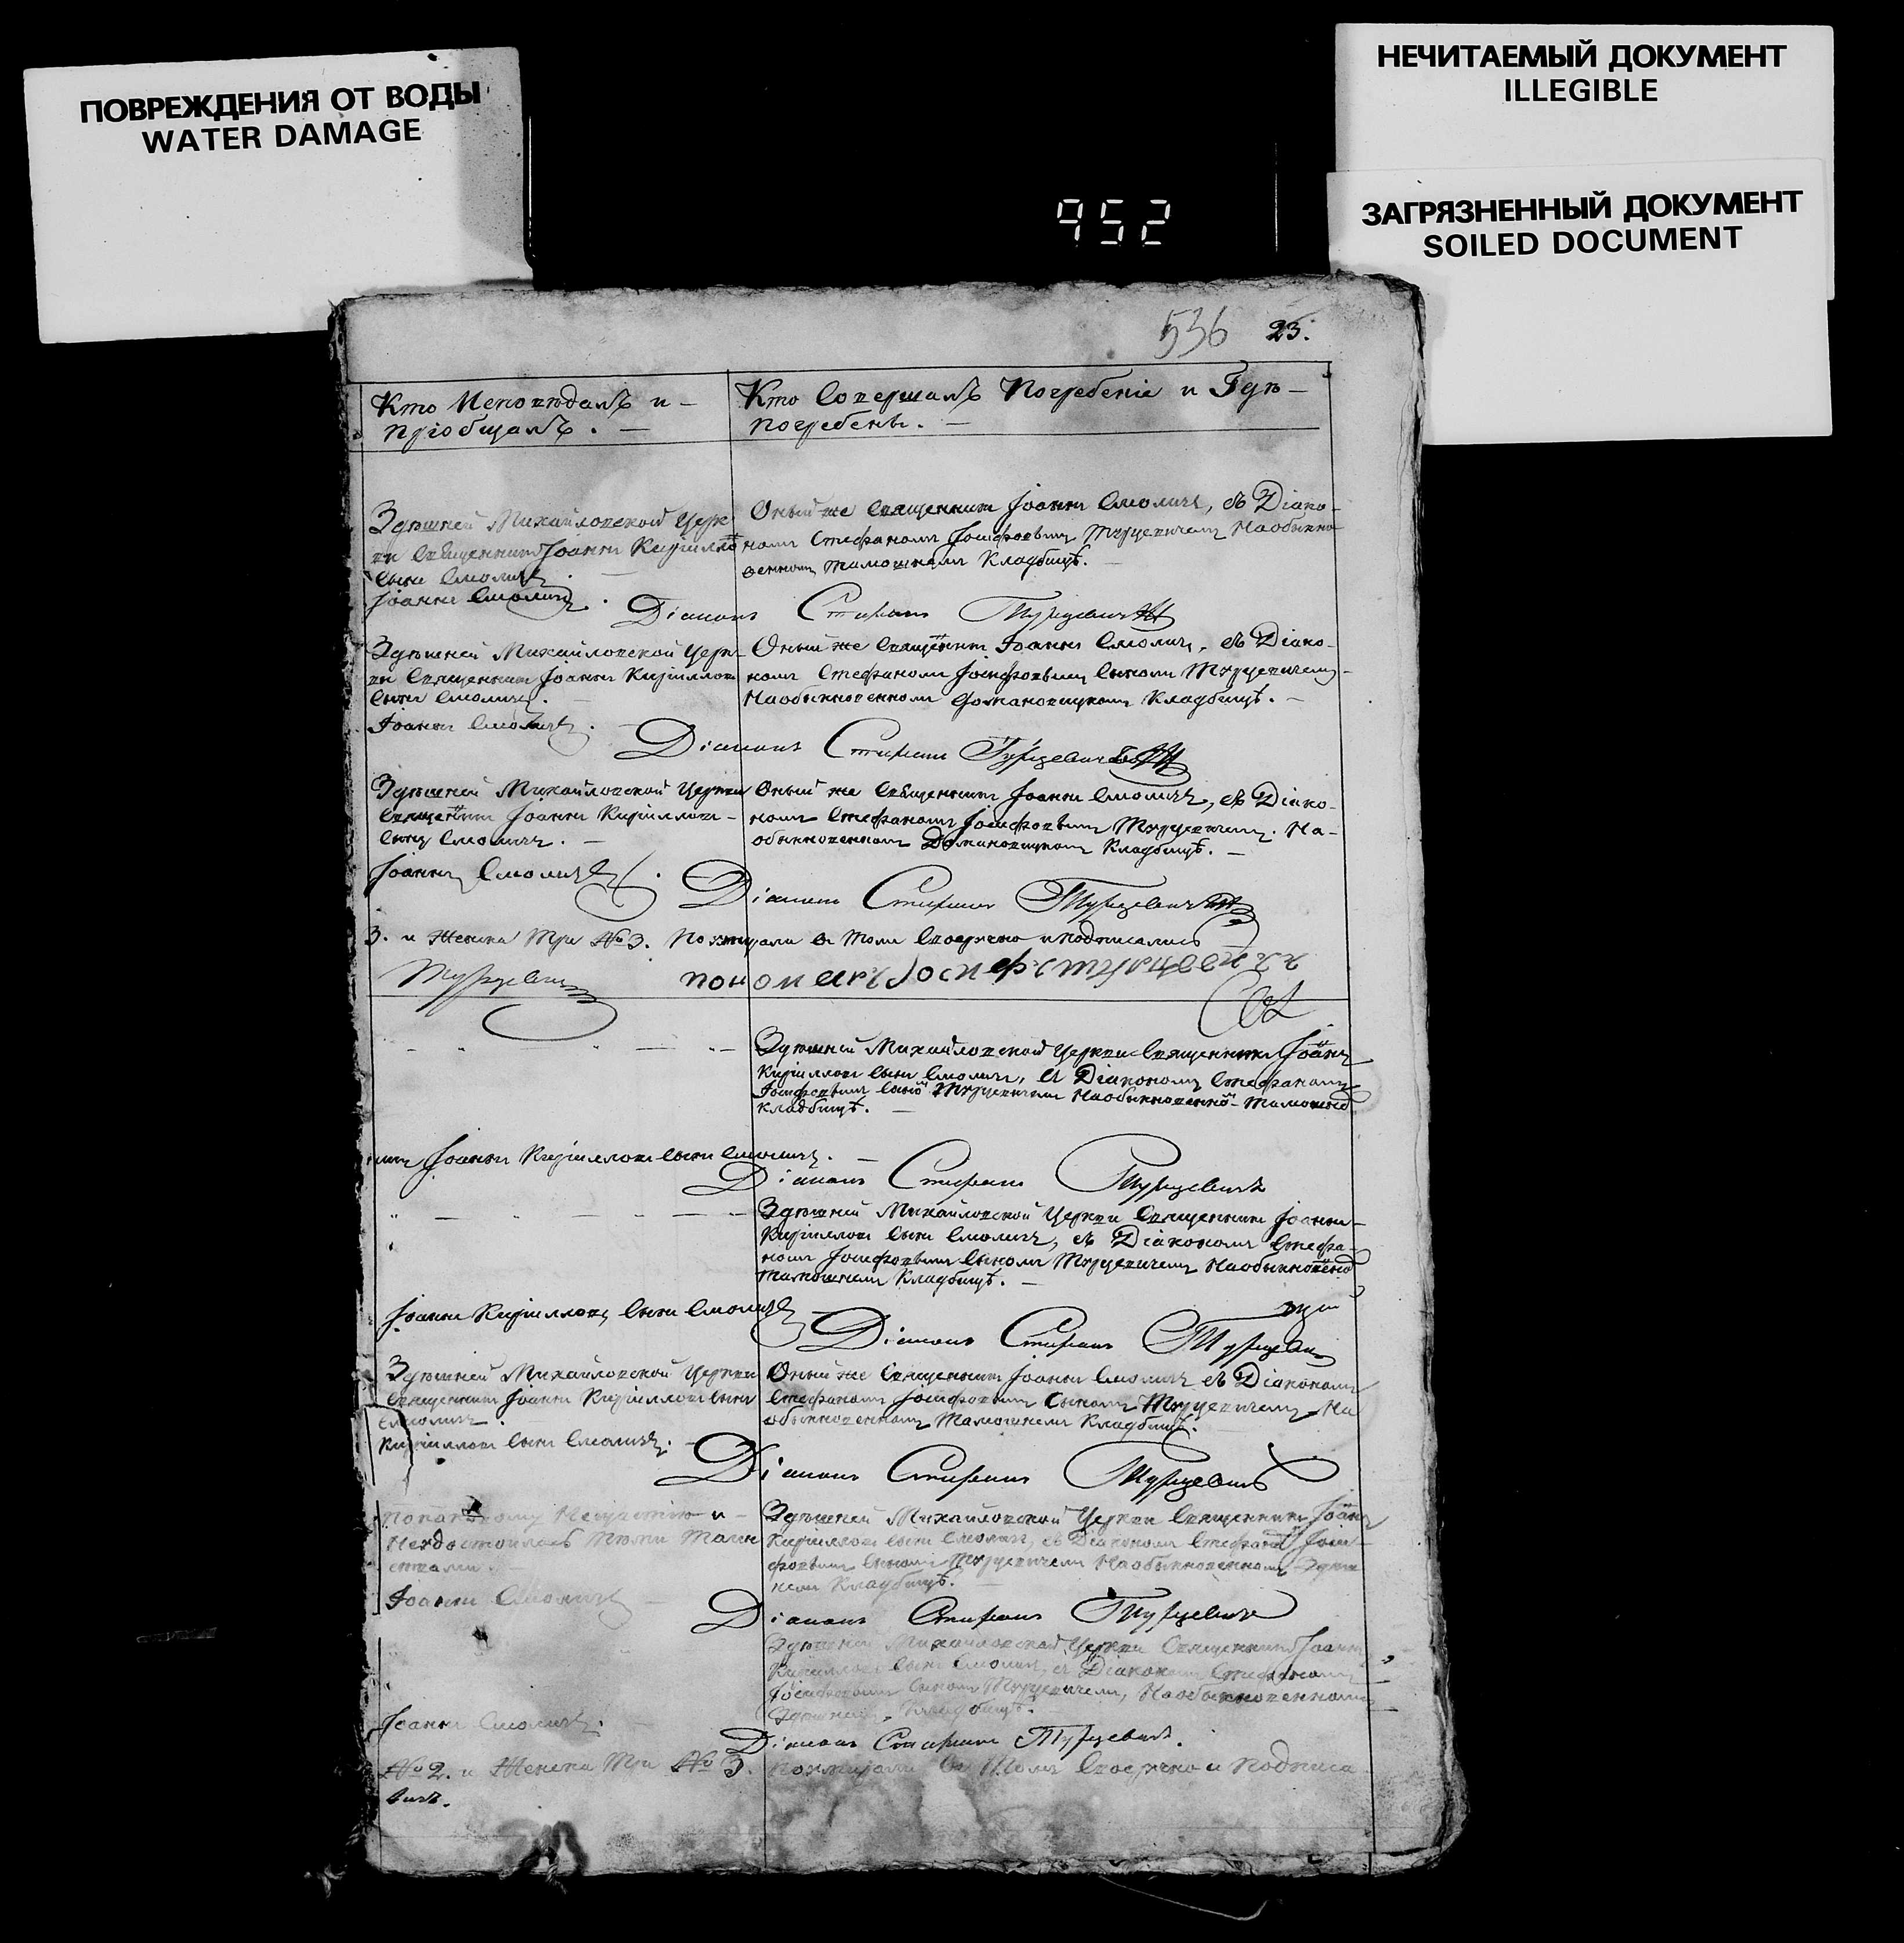 ПОВРЕЖДЕНИЯ ОТ ВОДЫ
WATER DAMAGE
НЕЧИТАЕМЫЙ ДОКУМЕНТ
ILLEGIBLE
ЗАГРЯЗНЕННЫЙ ДОКУМЕНТ
SOILED DOCUMENT
952
536 23.
Кто Исповѣдалъ и
пріобщалъ.
Кто Совершалъ Погребеніе и Гдѣ
погребены.
Здѣшней Михайловской Церк
ви Священникъ Іоаннъ Кирилловъ
Сынъ Смоличъ
Іоаннъ Смоличъ.
Оный же Священникъ Іоаннъ Смоличъ, съ Діако-
номъ Стефаномъ Іосифовымъ Турцевичемъ На обыкно
венномъ тамошнемъ Кладбищѣ.
Діаконъ Стефанъ Турцевичъ
Здѣшней Михайловской Церк-
ви Священникъ Іоаннъ Кирилловъ
Сынъ Смоличъ.
Іоаннъ Смоличъ.
Оный же Священникъ Іоаннъ Смоличъ, съ Діако-
номъ Стефаномъ Іосифовымъ Сыномъ Турцевичемъ
На обыкновенномъ Домановицкомъ Кладбищѣ.
Діаконъ Стефанъ Турцевичъ
Здѣшней Михайловской Церкви
Священникъ Іоаннъ Кирилловъ
Сынъ Смоличъ.
Іоаннъ Смоличъ.
Оный же Священникъ Іоаннъ Смоличъ, съ Діако-
номъ Стефаномъ Іосифовымъ Турцевичемъ На-
обыкновенномъ Домановицкомъ Кладбищѣ.
Діаконъ Стефанъ Турцевичъ
3. и Женска Три № 3. въ томъ Своеручно и подписались
Турцевичъ
пономарь Іосифъ
Здѣшней Михайловской Церкви Священникъ Іоаннъ
Кирилловъ Сынъ Смоличъ, съ Діакономъ Стефаномъ
Іосифовымъ Сыномъ Турцевичемъ На обыкновенномъ
Кладбищѣ.
Іоаннъ Кирилловъ Сынъ Смоличъ.
Діаконъ Стефанъ Турцевичъ
Здѣшней Михайловской Церкви Священникъ Іоаннъ
Кирилловъ Сынъ Смоличъ, съ Діакономъ Стефа-
номъ Іосифовымъ Сыномъ Турцевичемъ На обыкновенномъ
тамошнемъ Кладбищѣ.
Іоаннъ Кирилловъ Сынъ Смоличъ
Діаконъ Стефанъ Турцевичъ
Здѣшней Михайловской Церкви
Священникъ Іоаннъ Кирилловъ Сынъ
Смоличъ.
Кирилловъ Сынъ Смоличъ.
Оный же Священникъ Іоаннъ Смоличъ съ Діакономъ
Стефаномъ Іосифовымъ Сыномъ Турцевичемъ На
обыкновенномъ Тамошнемъ Кладбищѣ.
Діаконъ Стефанъ Турцевичъ
Іоаннъ Смоличъ
Здѣшней Михайловской Церкви Священникъ Іоаннъ
Кирилловъ Сынъ Смоличъ, съ Діакономъ Стефаномъ Іоси-
фовымъ Сыномъ Турцевичемъ На обыкновенномъ Здѣш
немъ Кладбищѣ.
Діаконъ Стефанъ Турцевичъ
Здѣшней Михайловской Церкви Священникъ Іоаннъ
Кирилловъ Сынъ Смоличъ, съ Діакономъ Стефаномъ
Іосифовымъ Сыномъ Турцевичемъ, На обыкновенномъ
Кладбищѣ.
Іоаннъ Смоличъ.
Діаконъ Стефанъ Турцевичъ.
№ 2. и Женска Три № 3. въ томъ Своеручно и подписа